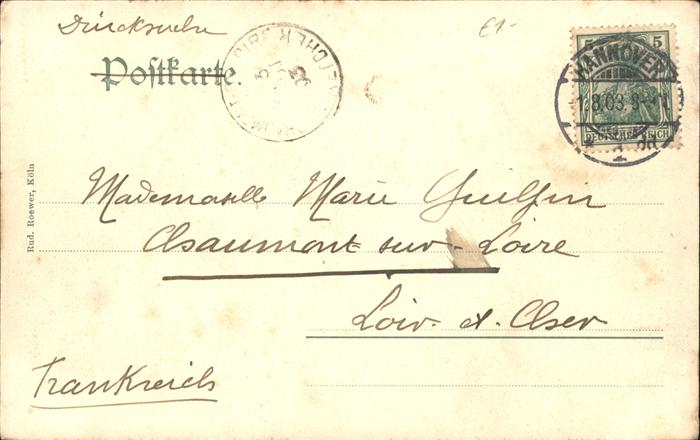 Drucksache
£1.-
Postkarte.
5 5
HANNOVER
1.8.03. 8-
DEUTSCHES REICH
1
Mademoiselle Marie Guilpin
Chaumont-sur-Loire
Loir-et-Cher
Frankreich
Rud. Roewer, Köln